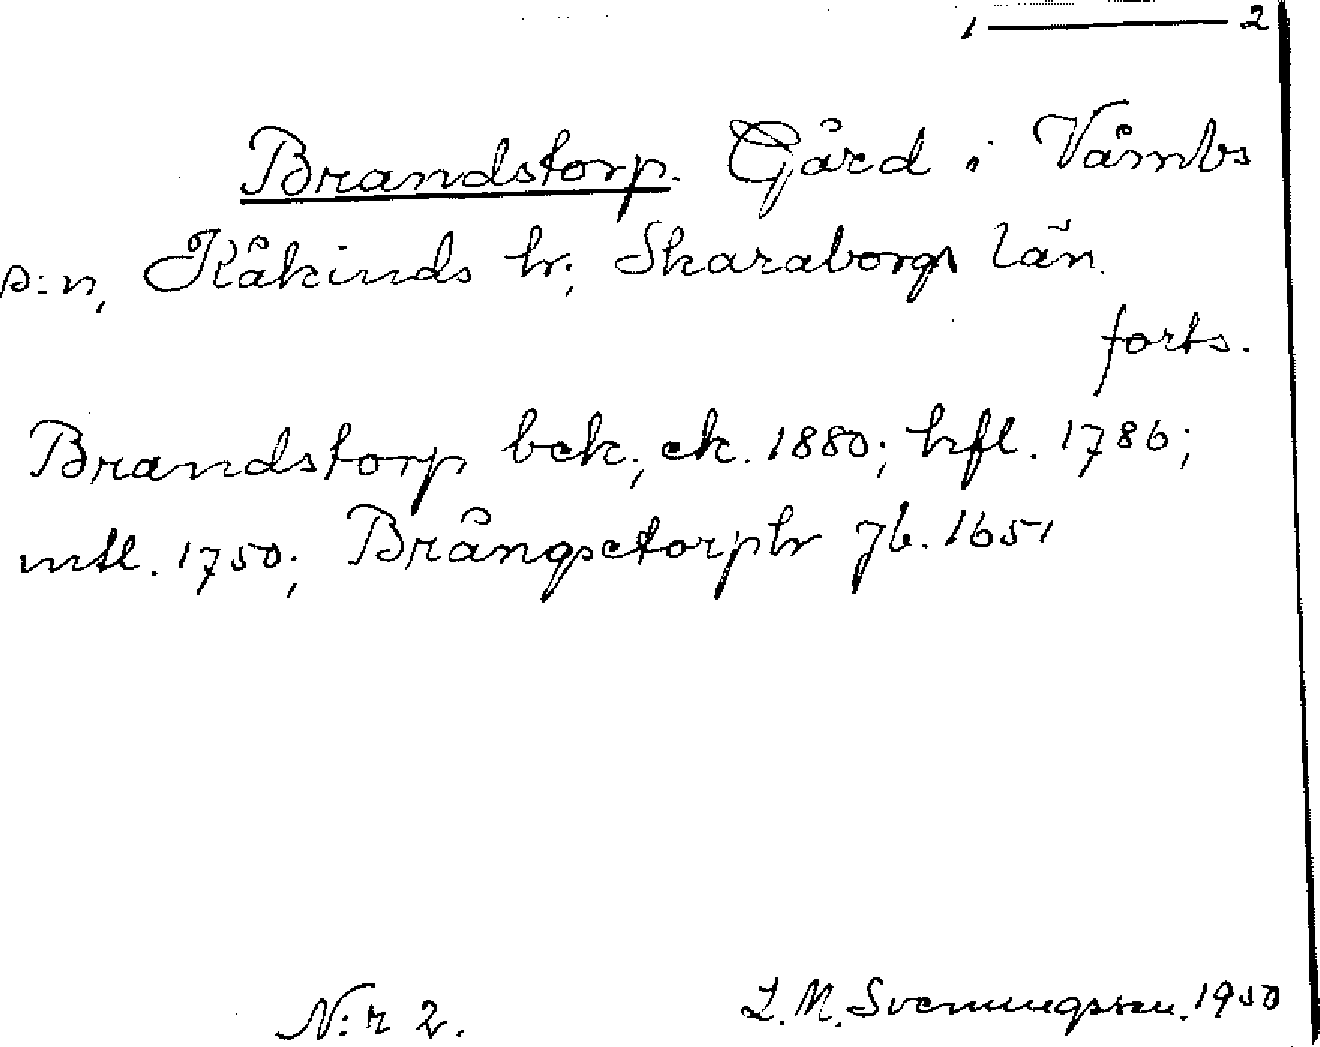 1 — 2
Brandstorp. Gård i Våmbs
s:n, Kåkinds hr; Skaraborgs län.
forts.
Brandstorp bek, ek. 1880; hfl. 1786;
mtl. 1750; Brångsetorphr jb. 1651
N:r 2.
L. M. Svenungsson. 1950